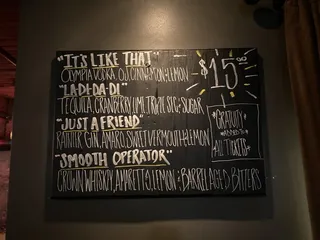 "IT'S LIKE THAT"
OLYMPIA VODKA, OJ, CINNAMON + LEMON
"LA-DI-DA-DI"
TEQUILA, CRANBERRY, LIME, TRIPLE SEC + SUGAR
"JUST A FRIEND"
RAINIER GIN, AMARO, SWEET VERMOUTH + LEMON
"SMOOTH OPERATOR"
CROWN WHISKEY, AMARETTO, LEMON + BARREL AGED BITTERS
$15
*GRATUITY
ADDED TO
ALL TICKETS*